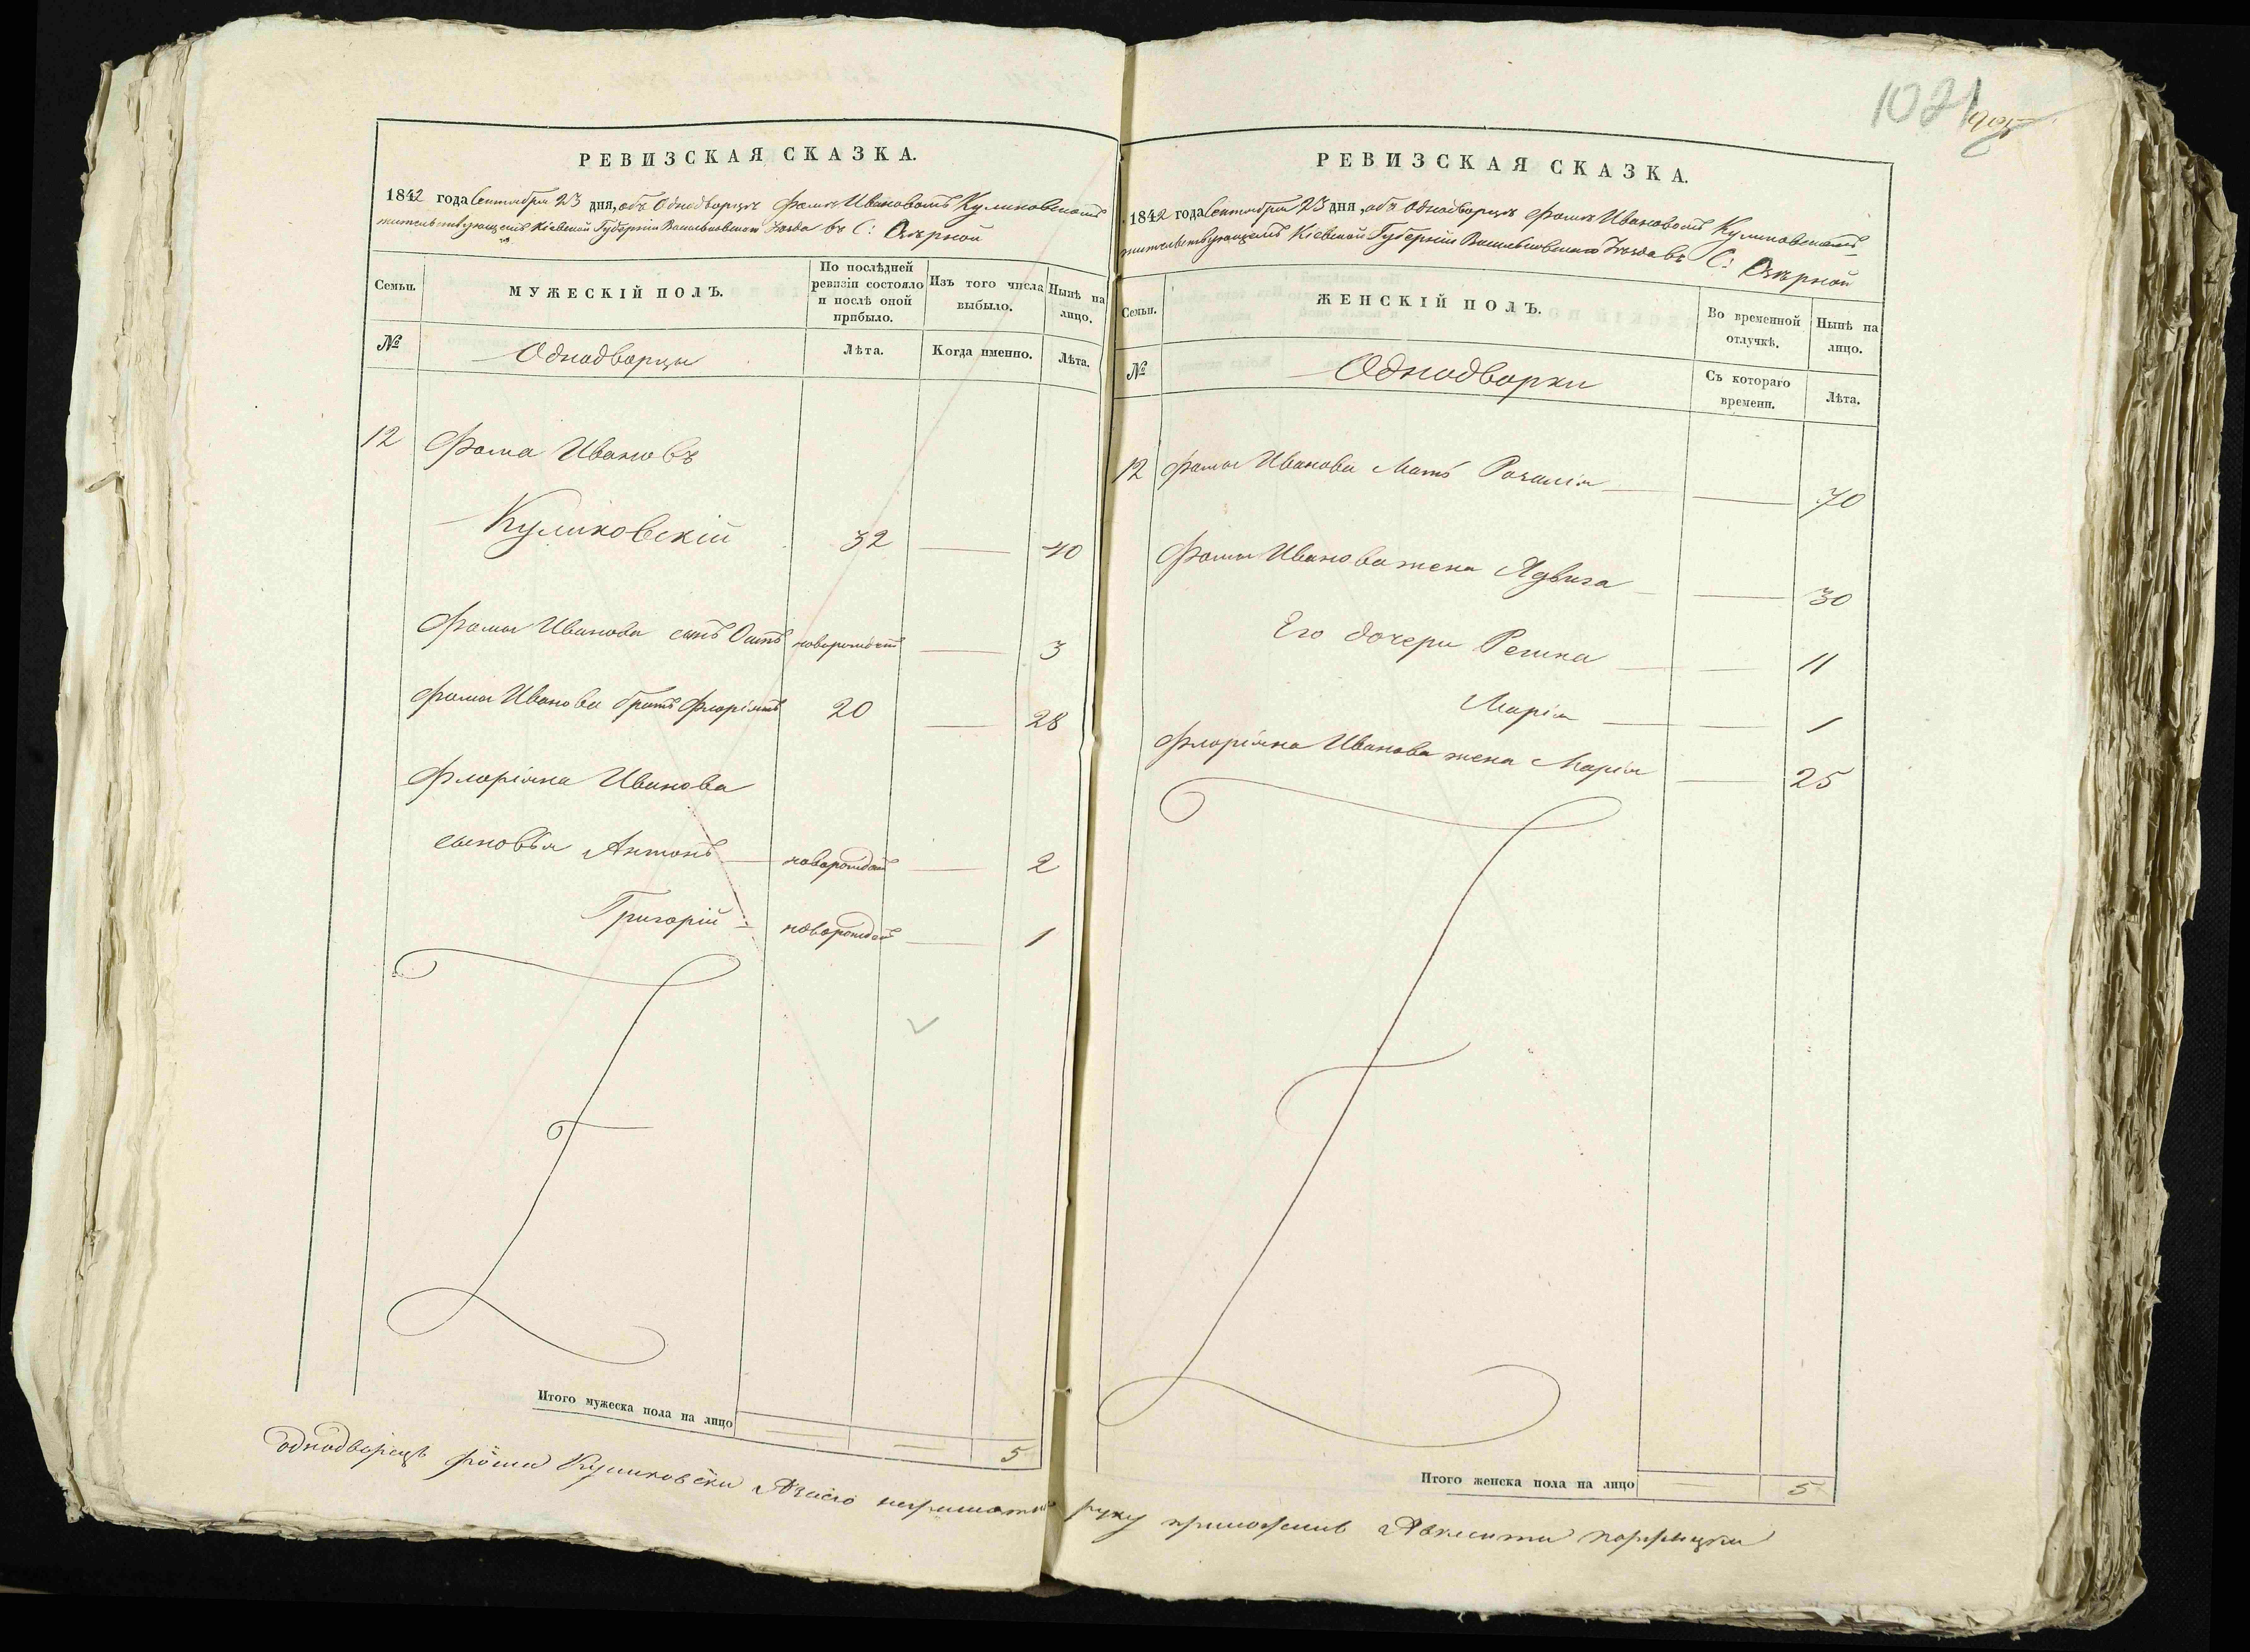 РЕВИЗСКАЯ СКАЗКА.
1842 года Сентября 23 дня, объ Однодворцѣ Фомѣ Ивановомъ Куликовскомъ
жительствующемъ Кіевской Губерніи Васильковскаго Уѣзда въ С: Озѣрной
Семьи.
МУЖЕСКІЙ ПОЛЪ.
По послѣдней ревизіи состояло и послѣ оной прибыло.
Изъ того числа выбыло.
Нынѣ на лицо.
№
Однодворцы
Лѣта.
Когда именно.
Лѣта.
12 Фома Ивановъ
Куликовскій 32 — 40
Фомы Иванова сынъ новорожден — 3
Фомы Иванова братъ Флоріянъ 20 — 28
Флоріяна Иванова
сыновья Антонъ — новорожден — 2
Григорій — новорожден — 1
Итого мужеска пола на лицо — — 5
1021
РЕВИЗСКАЯ СКАЗКА.
1842 года Сентября 23 дня, объ Однодворцѣ Фомѣ Ивановомъ Куликовскомъ
жительствующемъ Кіевской Губерніи Васильковскаго Уѣзда въ С: Озѣрной
Семьи.
ЖЕНСКІЙ ПОЛЪ.
Во временной отлучкѣ.
Нынѣ на лицо.
№
Однодворки
Съ котораго времени.
Лѣта.
12 Фомы Иванова Мать Розалія — — 70
Фомы Иванова жена Ядвига — — 30
Его дочери Регина — — 11
Марія — — 1
Флоріяна Иванова жена Марія — 25
Итого женска пола на лицо — 5
Однодворецъ Фома Куликовски неграмотны руку приложилъ